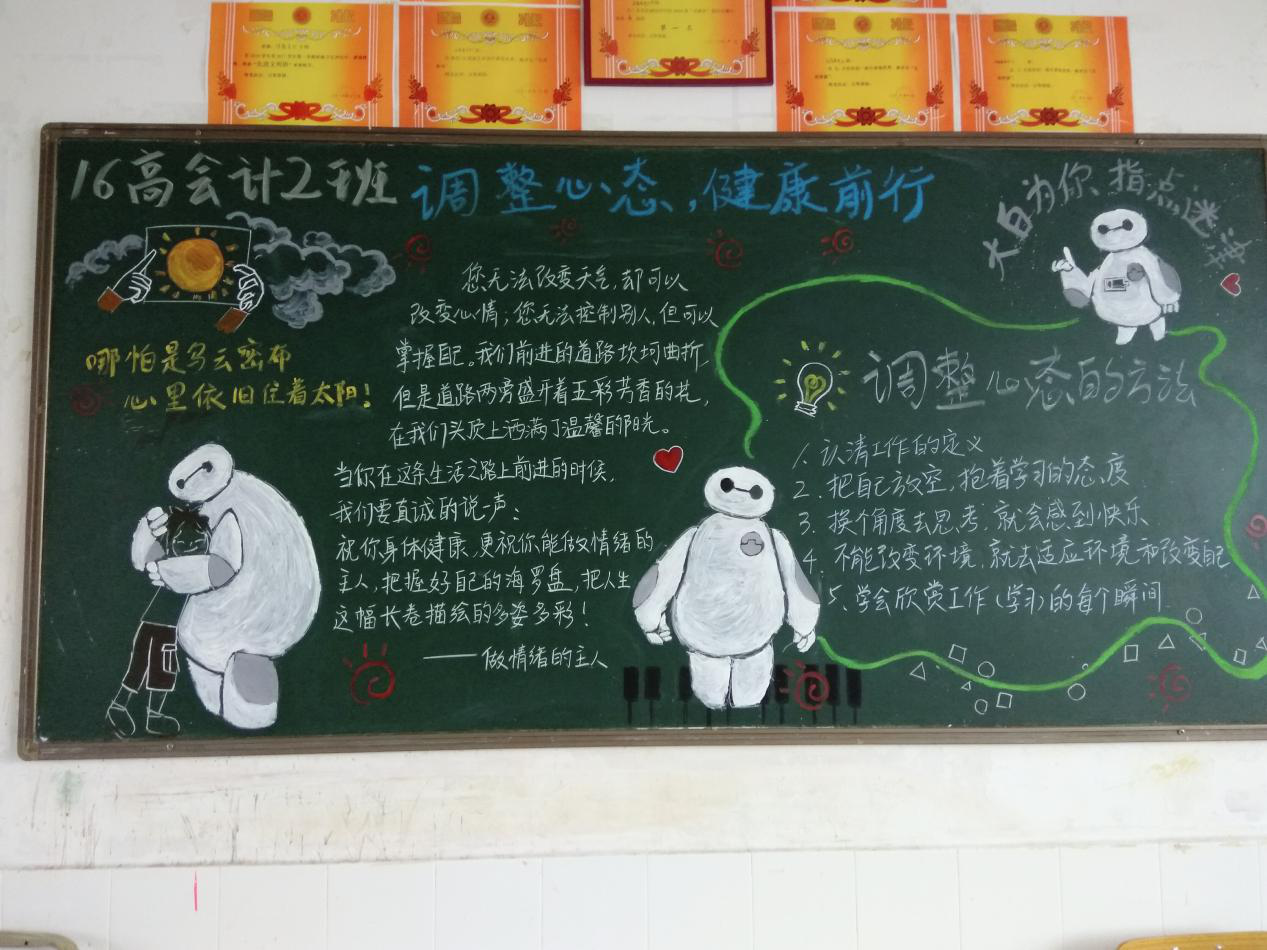 第一名
16高会计2班
调整心态,健康前行
大白为你指点迷津
哪怕是乌云密布
心里依旧住着太阳!
您无法改变天气,却可以
改变心情;您无法控制别人,但可以
掌握自己。我们前进的道路坎坷曲折,
但是道路两旁盛开着五彩芳香的花,
在我们头顶上洒满了温馨的阳光。
当你在这条生活之路上前进的时候,
我们要真诚的说一声:
祝你身体健康,更祝你能做情绪的
主人,把握好自己的海罗盘,把人生
这幅长卷描绘的多姿多彩!
——做情绪的主人
调整心态的方法
1.认清工作的定义
2.把自己放空,抱着学习的态度
3.换个角度去思考,就会感到快乐
4.不能改变环境,就去适应环境和改变自己
5.学会欣赏工作(学习)的每个瞬间